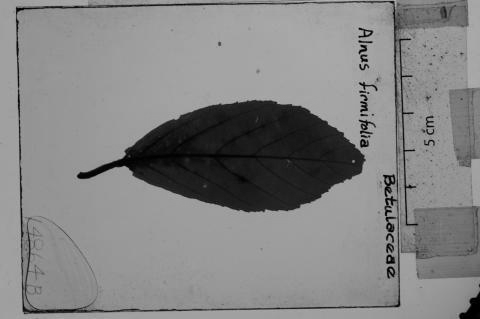 Alnus firmifolia
Betulaceae
5 cm